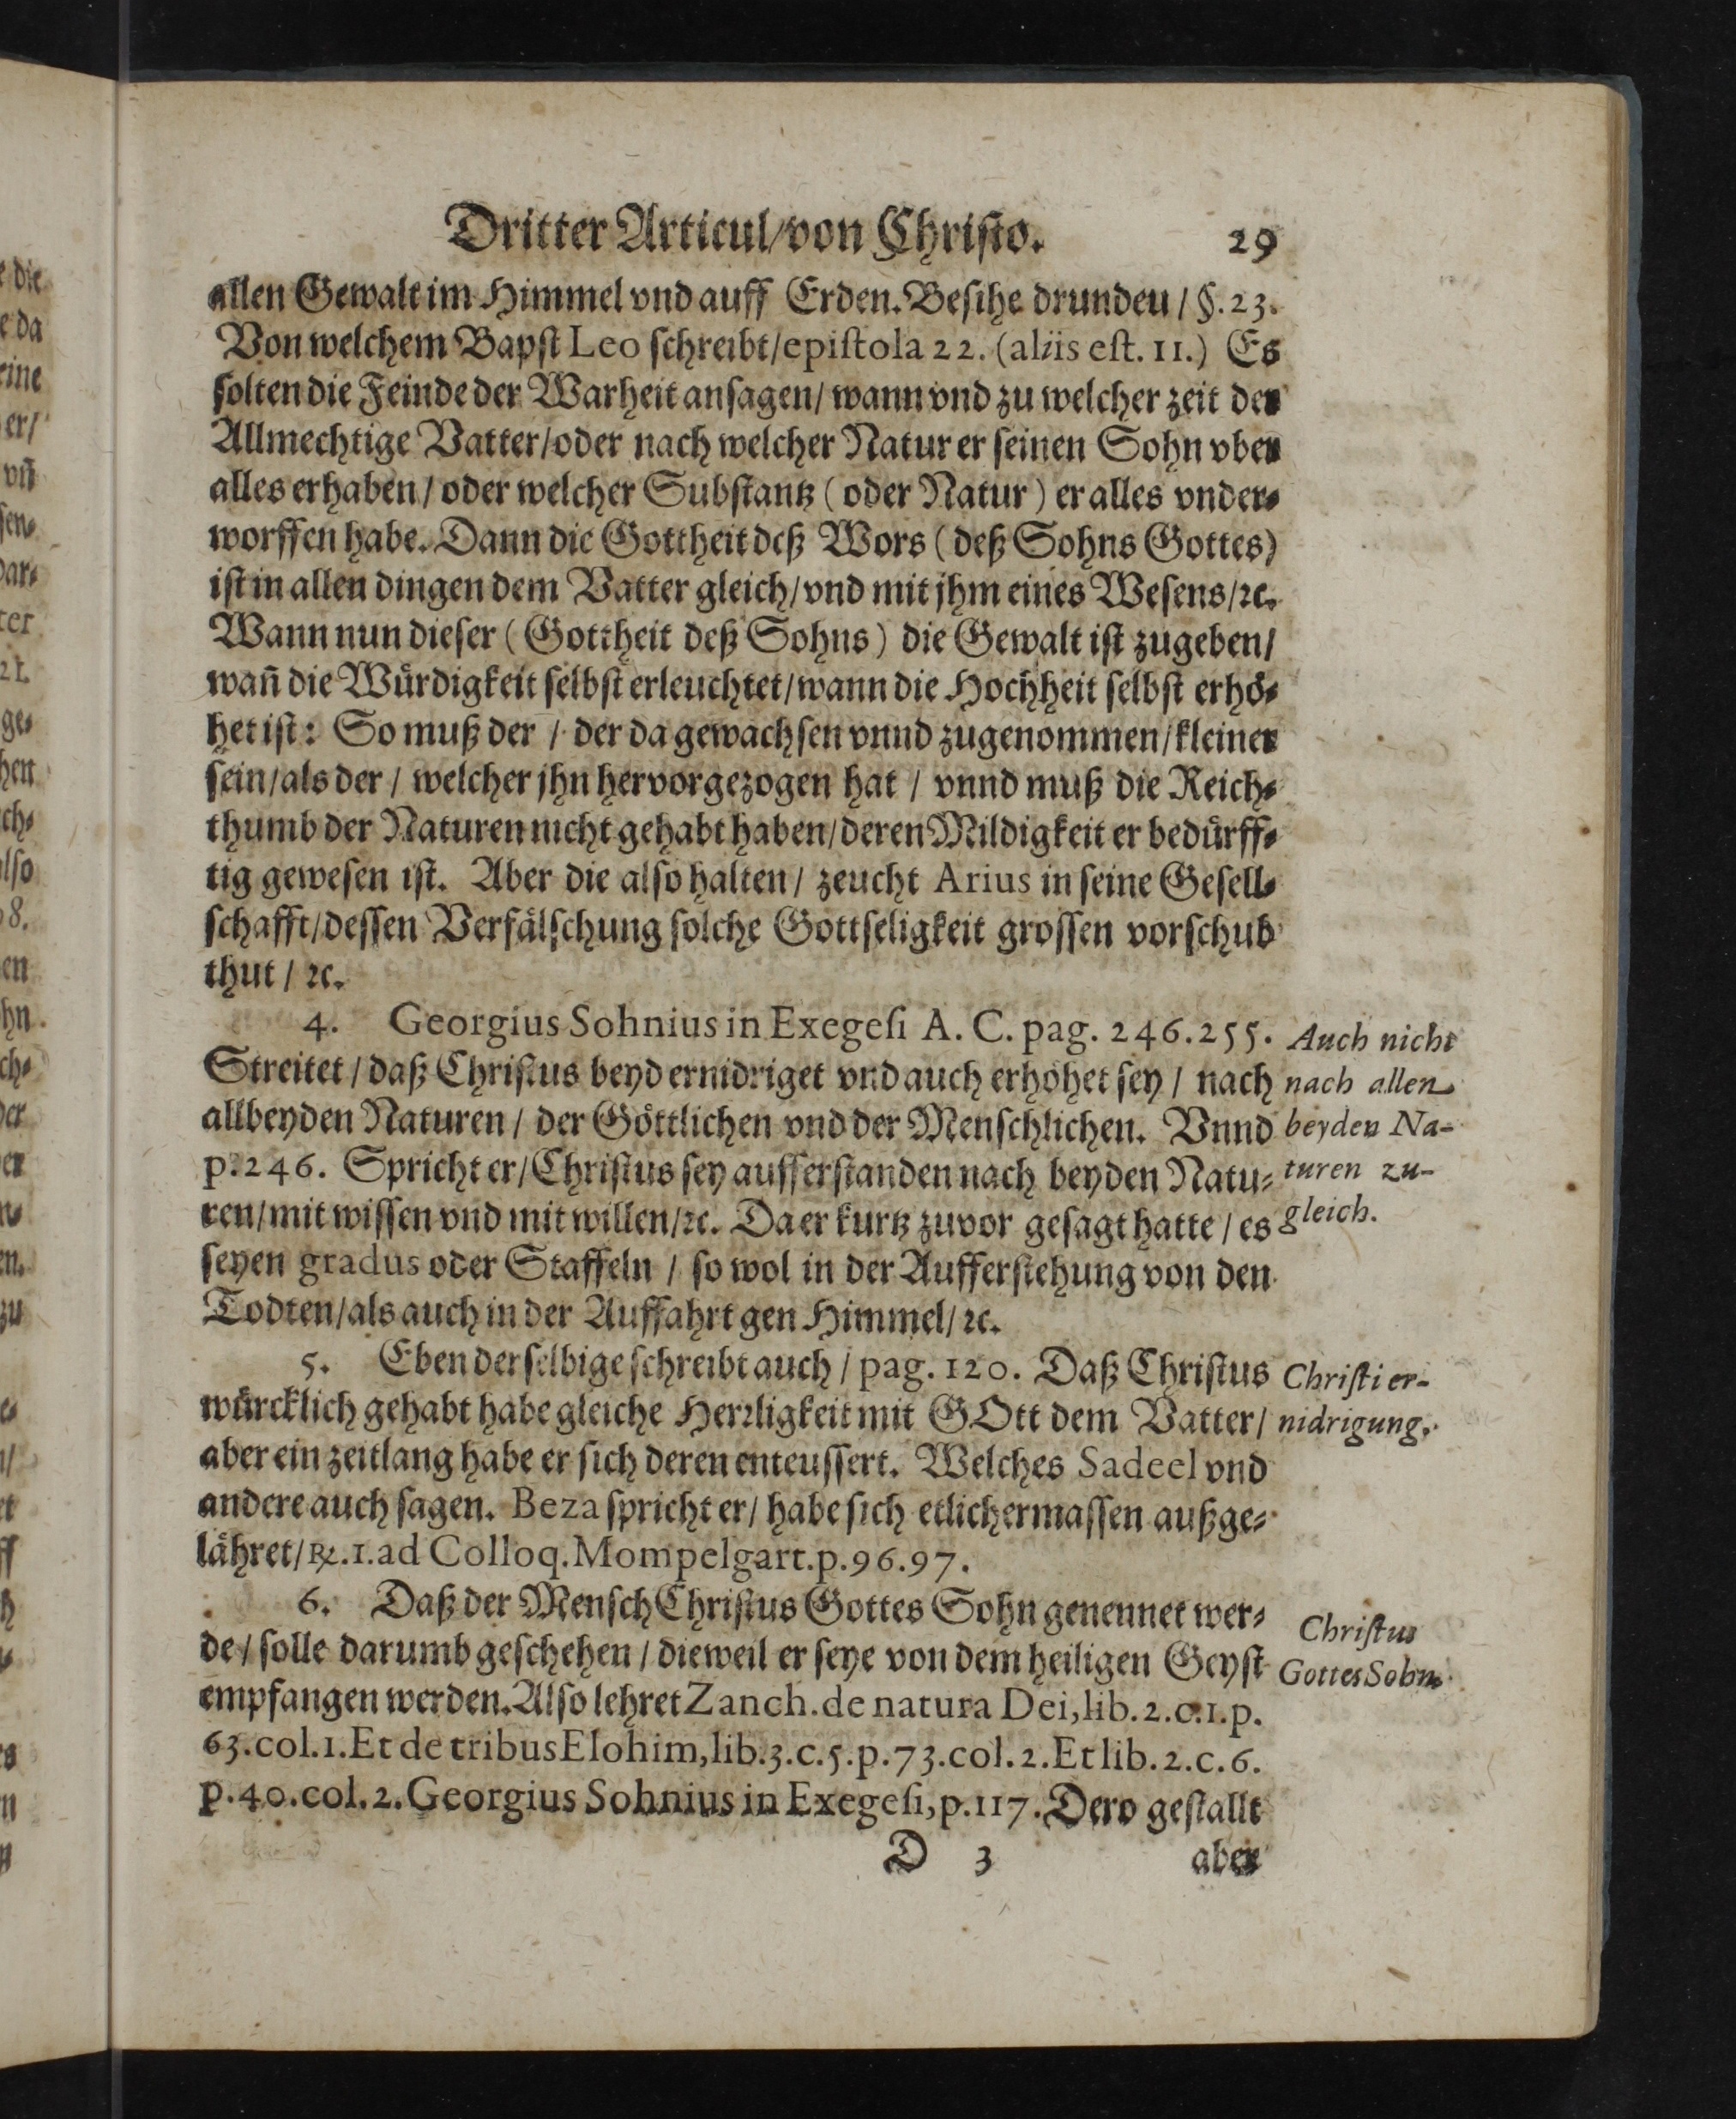 Dritter Articul/von Christo. 29
allen Gewalt im Himmel vnd auff Erden. Besihe drunden / §. 23.
Von welchem Bapst Leo schreibt/epistola 22. (aliis est. 11.) Es
solten die Feinde der Warheit ansagen/ wann vnd zu welcher zeit der
Allmechtige Vatter/oder nach welcher Natur er seinen Sohn vber
alles erhaben/ oder welcher Substantz (oder Natur) er alles vnder-
worffen habe. Dann die Gottheit deß Wors (deß Sohns Gottes)
ist in allen dingen dem Vatter gleich/ vnd mit jhm eines Wesens/ꝛc.
Wann nun dieser (Gottheit deß Sohns) die Gewalt ist zugeben/
wañ die Würdigkeit selbst erleuchtet/wann die Hochheit selbst erhö-
het ist: So muß der / der da gewachsen vnnd zugenommen/kleiner
sein/als der / welcher jhn hervorgezogen hat / vnnd muß die Reich-
thumb der Naturen nicht gehabt haben/deren Mildigkeit er bedürff-
tig gewesen ist. Aber die also halten/ zeucht Arius in seine Gesell-
schafft/dessen Verfälschung solche Gottseligkeit grossen vorschub
thut / ꝛc.
4. Georgius Sohnius in Exegesi A. C. pag. 246.255.
Streitet / daß Christus beyd ernidriget vnd auch erhöhet sey / nach
allbeyden Naturen / der Göttlichen vnd der Menschlichen. Vnnd
p. 246. Spricht er/Christus sey aufferstanden nach beyden Natu-
ren/mit wissen vnd mit willen/ꝛc. Da er kurtz zuvor gesagt hatte / es
seyen gradus oder Staffeln / so wol in der Aufferstehung von den
Todten/als auch in der Auffahrt gen Himmel/ꝛc.
Auch nicht
nach allen
beyden Na-
turen zu-
gleich.
5. Eben derselbige schreibt auch / pag. 120. Daß Christus
würcklich gehabt habe gleiche Herrligkeit mit GOtt dem Vatter/
aber ein zeitlang habe er sich deren enteussert. Welches Sadeel vnd
andere auch sagen. Beza spricht er/ habe sich etlichermassen außge-
lähret/℞.1.ad Colloq. Mompelgart. p. 96.97.
Christi er-
nidrigung.
6. Daß der Mensch Christus Gottes Sohn genennet wer-
de / solle darumb geschehen / dieweil er seye von dem heiligen Geyst
empfangen werden. Also lehret Zanch. de natura Dei, lib. 2. c. 1. p.
63. col. 1. Et de tribus Elohim, lib. 3. c. 5. p. 73. col. 2. Et lib. 2. c. 6.
p. 40. col. 2. Georgius Sohnius in Exegesi, p. 117. Dero gestallt
Christus
Gottes Sohn.
D 3 aber